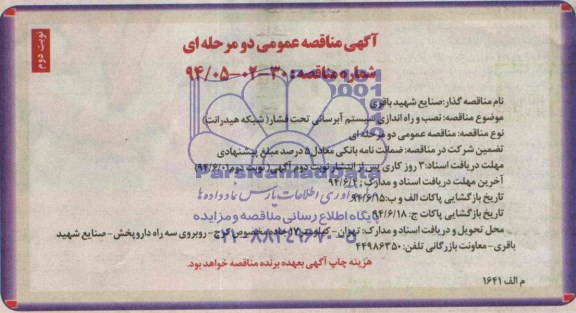 نوبت دوم
آگهی مناقصه عمومی دو مرحله ای
شماره مناقصه: ۳۰-۰۲-۹۴/۰۵
نام مناقصه گذار: صنایع شهید باقری
موضوع مناقصه: نصب و راه اندازی سیستم آبرسانی تحت فشار (شبکه هیدرانت)
نوع مناقصه: مناقصه عمومی دو مرحله ای
تضمین شرکت در مناقصه: ضمانت نامه بانکی معادل ۵ درصد مبلغ پیشنهادی
مهلت دریافت اسناد: ۳ روز کاری پس از انتشار نوبت دوم آگهی (نوبت دوم ۹۴/۶/۰۱)
آخرین مهلت دریافت اسناد و مدارک: ۹۴/۶/۴
تاریخ بازگشایی پاکات الف و ب: ۹۴/۶/۱۵
تاریخ بازگشایی پاکات ج: ۹۴/۶/۱۸
محل تحویل و دریافت اسناد و مدارک: تهران - کیلومتر ۱۷ جاده مخصوص کرج - روبروی سه راه داروپخش - صنایع شهید
باقری - معاونت بازرگانی تلفن: ۴۴۹۸۶۳۵۰
هزینه چاپ آگهی بعهده برنده مناقصه خواهد بود.
م الف ۱۶۴۱
ParsNamadData
فن آوری اطلاعات پارس نماد داده ها
پایگاه اطلاع رسانی مناقصه و مزایده
۰۲۱-۸۸۳۴۹۶۷۰-۵